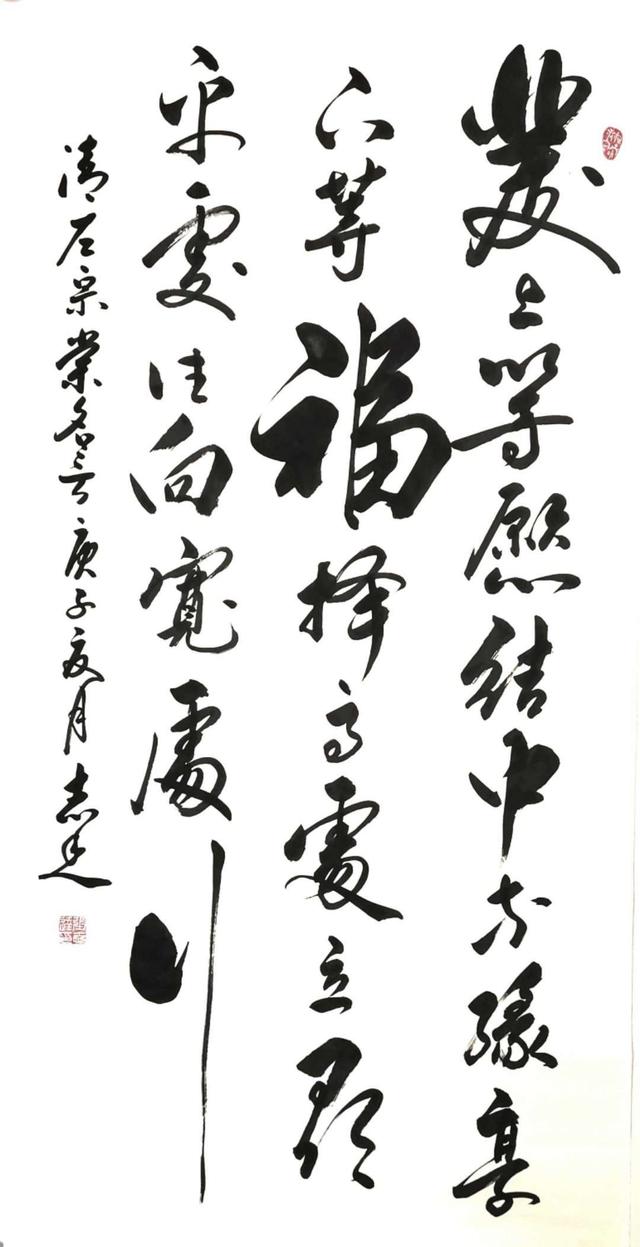 發上等愿結中等緣享
下等福择高處立尋
平處住向寬處行
清左宗棠名言庚子夏月志